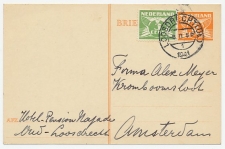 BRIE
NEDERLAND
LOOSDRECHT
1941
Firma Alex Meyer
Kromboomssloot
Amsterdam
Hotel-Pension
Oud-Loosdrecht